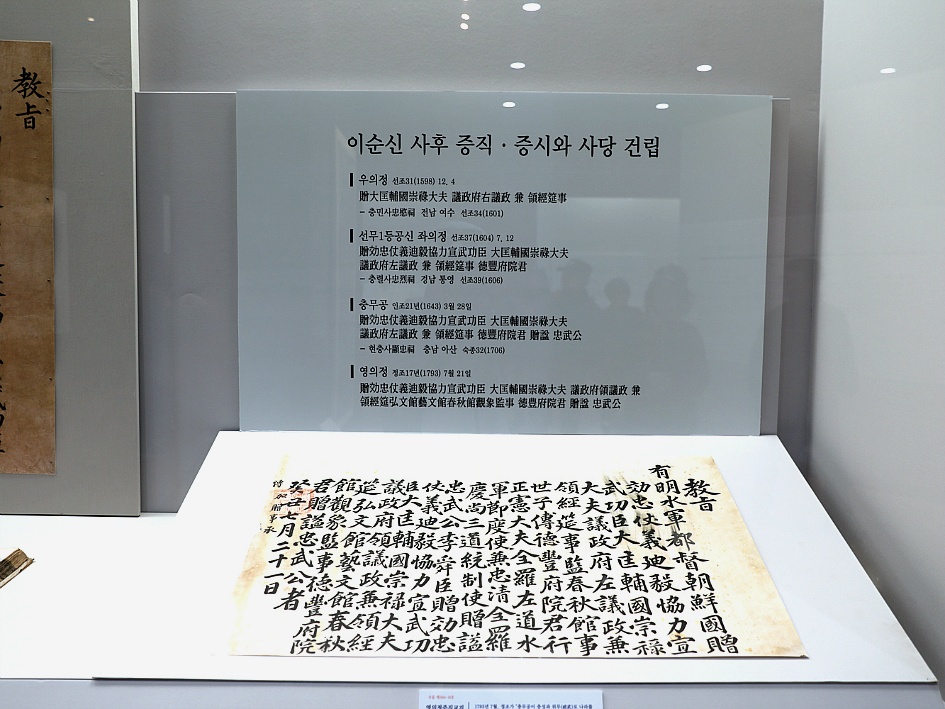 이순신 사후 증직 · 증시와 사당 건립
우의정 선조31(1598) 12. 4
贈大匡輔國崇祿大夫 議政府右議政 兼 領經筵事
- 충민사忠愍祠 전남 여수 선조34(1601)
선무1등공신 좌의정 선조37(1604) 7. 12
贈効忠仗義迪毅協力宣武功臣 大匡輔國崇祿大夫
議政府左議政 兼 領經筵事 德豐府院君
- 충렬사忠烈祠 경남 통영 선조39(1606)
충무공 인조21년(1643) 3월 28일
贈効忠仗義迪毅協力宣武功臣 大匡輔國崇祿大夫
議政府左議政 兼 領經筵事 德豐府院君 贈諡 忠武公
- 현충사顯忠祠 충남 아산 숙종32(1706)
영의정 정조17년(1793) 7월 21일
贈効忠仗義迪毅協力宣武功臣 大匡輔國崇祿大夫 議政府領議政 兼
領經筵弘文館藝文館春秋館觀象監事 德豐府院君 贈諡 忠武公
教旨
教旨
有明水軍都督朝鮮國贈
効忠仗義迪毅協力宣
武功臣大匡輔國崇禄
大夫議政府左議政兼
領經筵事監春秋館事
世子傅德豐府院君行
正憲大夫全羅左道水
軍節度使兼忠清全羅
慶尚三道統制使贈諡
忠武公李舜臣贈効忠
仗義迪毅協力宣武功
臣大匡輔國崇禄大夫
議政府領議政兼領經
筵弘文館藝文館春秋
館觀象監事德豐府院
君贈諡忠武公者
癸丑七月二十一日